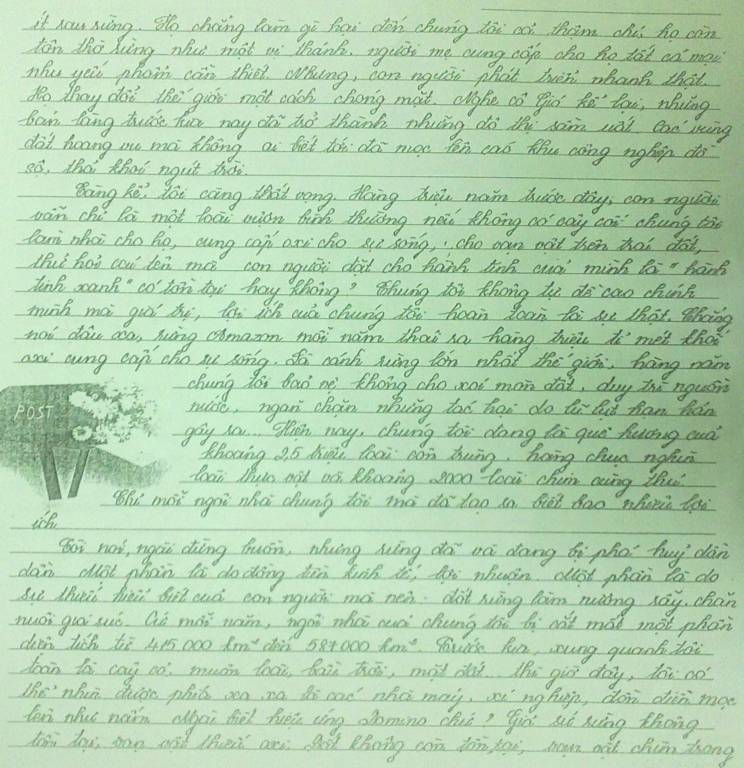 ít sau rừng. Họ chẳng làm gì hại đến chúng tôi cả thậm chí, họ còn
tôn thờ rừng như một vị thánh, người mẹ cung cấp cho họ tất cả mọi
nhu yếu phẩm cần thiết. Nhưng, con người phát triển nhanh thật.
Họ thay đổi thế giới một cách chóng mặt. Nghe cô Gió kể lại, những
bản làng trước kia nay đã trở thành những đô thị sầm uất. Các vùng
đất hoang vu mà không ai biết tới đã mọc lên các khu công nghiệp đồ
sộ, thải khói ngút trời.
Càng kể, tôi càng thất vọng. Hàng triệu năm trước đây, con người
vẫn chỉ là một loài vượn bình thường nếu không có cây cối chúng tôi
làm nhà cho họ, cung cấp oxi cho sự sống, cho vạn vật trên trái đất,
thử hỏi cái tên mà con người đặt cho hành tinh của mình là "hành
tinh xanh" có tồn tại hay không? Chúng tôi không tự đề cao chính
mình mà giá trị, lợi ích của chúng tôi hoàn toàn là sự thật. Chẳng
nói đâu xa, rừng Amazon mỗi năm thải ra hàng triệu tỉ mét khối
oxi cung cấp cho sự sống. Là cánh rừng lớn nhất thế giới, hàng năm
chúng tôi bảo vệ không cho xói mòn đất, duy trì nguồn
POST
nước, ngăn chặn những tác hại do lũ lụt hạn hán
gây ra... Hiện nay, chúng tôi đang là quê hương của
khoảng 2,5 triệu loài côn trùng, hàng chục nghìn
loài thực vật và khoảng 2000 loài chim cùng thú.
Chỉ mỗi ngôi nhà chúng tôi mà đã tạo ra biết bao nhiêu lợi
ích
Tôi nói, ngài đừng buồn, nhưng rừng đã và đang bị phá huỷ dần
dần. Một phần là do đồng tiền kinh tế, lợi nhuận. Một phần là do
sự thiếu hiểu biết của con người mà nên: đốt rừng làm nương rẫy, chăn
nuôi gia súc. Cứ mỗi năm, ngôi nhà của chúng tôi bị cắt mất một phần
diện tích từ 415.000 km² đến 587.000 km². Trước kia, xung quanh tôi
toàn là cây cỏ, muôn loài, bầu trời, mặt đất... thì giờ đây, tôi có
thể nhìn được phía xa xa là các nhà máy, xí nghiệp, đồn điền mọc
lên như nấm. Ngài biết hiệu ứng Domino chứ? Giả sử rừng không
tồn tại, vạn vật thiếu oxi. Đất không còn tồn tại, vạn vật chìm trong